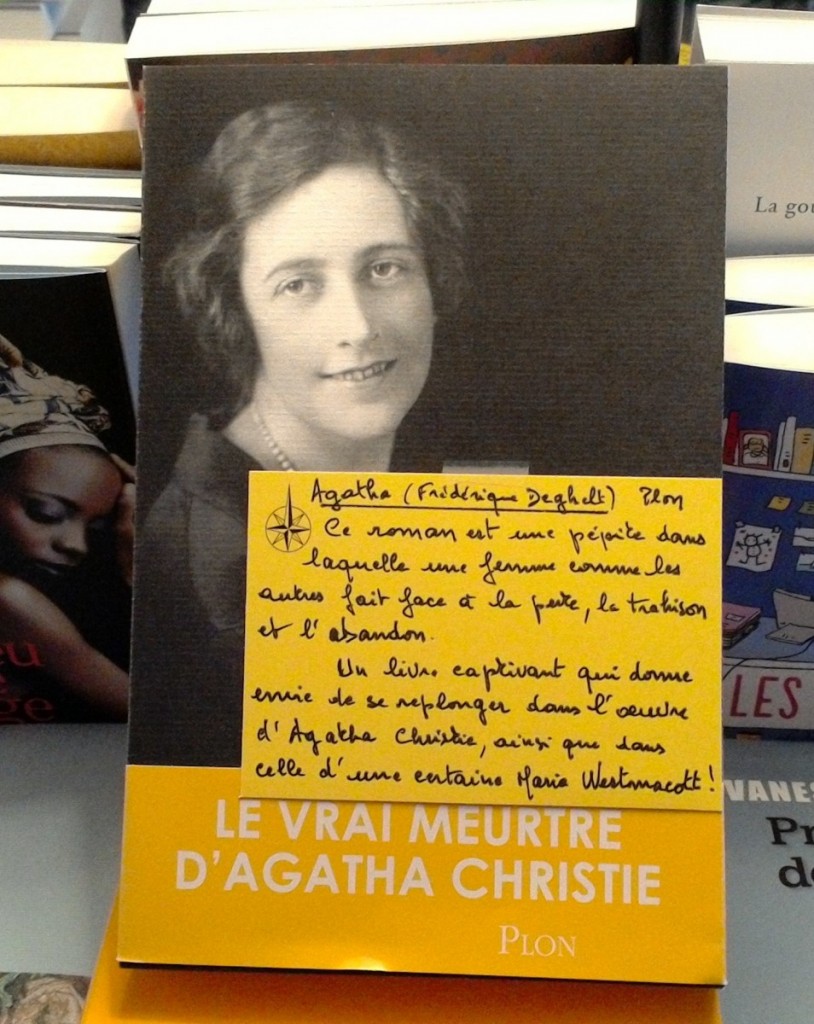 La gou
Agatha (Frédérique Deghelt) Plon
Ce roman est une pépite dans
laquelle une femme comme les
autres fait face à la perte, la trahison
et l'abandon.
Un livre captivant qui donne
envie de se replonger dans l'œuvre
d'Agatha Christie, ainsi que dans
celle d'une certaine Marie Westmacott!
LE VRAI MEURTRE
D'AGATHA CHRISTIE
PLON
eu
e
ge
LES
VANES
Pr
de